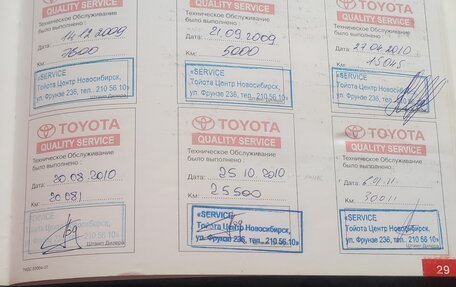 TOYOTA
QUALITY SERVICE
Техническое Обслуживание
было выполнено :
Дата: 14.12.2009
Км: 7800
«SERVICE
Тойота Центр Новосибирск,
ул. Фрунзе 236, тел. 210 56 10»
TOYOTA
QUALITY SERVICE
Техническое Обслуживание
было выполнено :
Дата: 21.09.2009
Км: 5000
«SERVICE
Тойота Центр Новосибирск,
ул. Фрунзе 236, тел.. 210 56 10»
TOYOTA
QUALITY SERVICE
Техническое Обслуживание
было выполнено :
Дата: 27.04.2010
Км: 15045
«SERVICE
Тойота Центр Новосибирск,
ул. Фрунзе 236, тел.. 210 56 10»
Штамп Дилера
TOYOTA
QUALITY SERVICE
Техническое Обслуживание
было выполнено :
Дата: 20.08.2010
Км: 20081
«SERVICE
Тойота Центр Новосибирск,
ул. Фрунзе 236, тел.. 210 56 10»
Штамп Дилера
TOYOTA
QUALITY SERVICE
Техническое Обслуживание
было выполнено :
Дата: 25.10.2010
Км: 25500
«SERVICE
Тойота Центр Новосибирск,
ул. Фрунзе 236, тел.. 210 56 10»
Штамп Дилера
TOYOTA
QUALITY SERVICE
Техническое Обслуживание
было выполнено :
Дата:
Км: 30011
«SERVICE
Тойота Центр Новосибирск,
ул. Фрунзе 236, тел.. 210 56 10»
Штамп Дилера
29